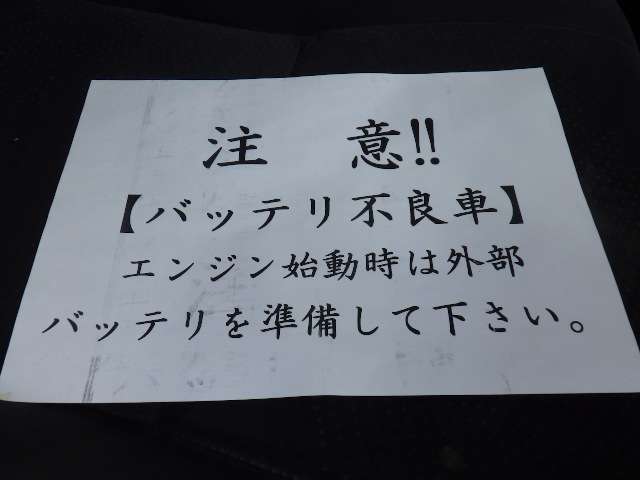 注　意!!
【バッテリ不良車】
エンジン始動時は外部
バッテリを準備して下さい。